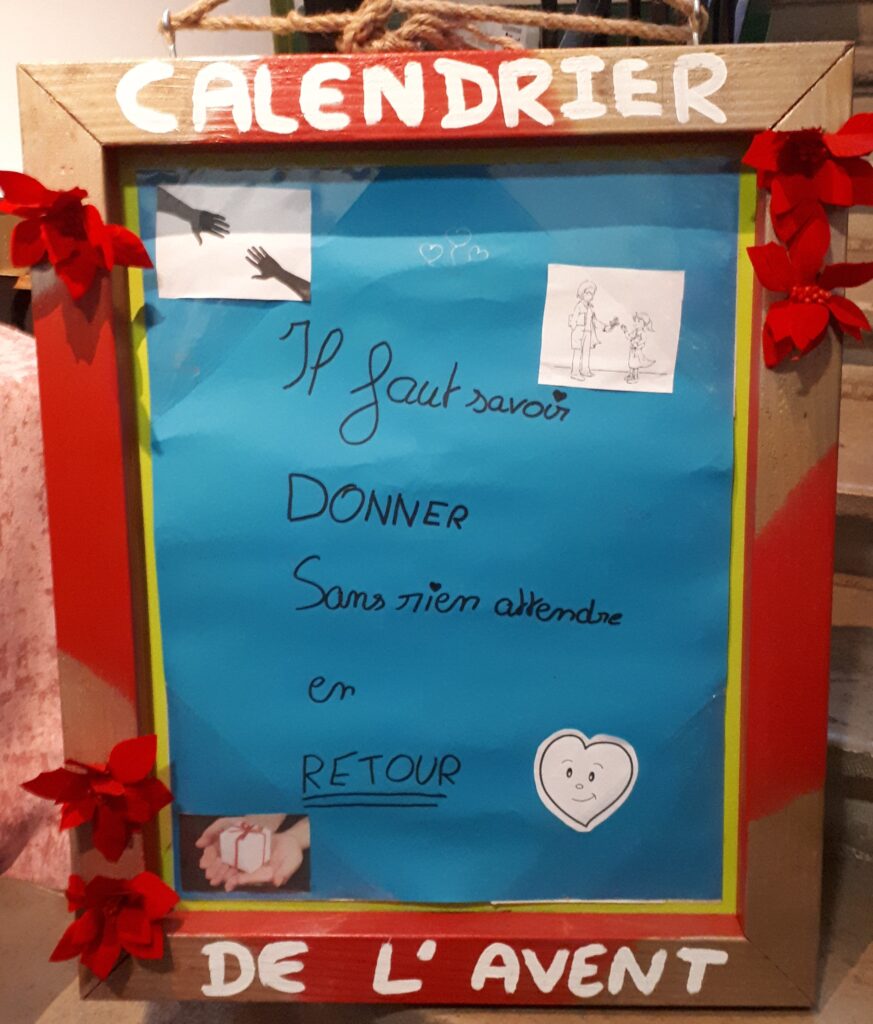 CALENDRIER
Il faut savoir
DONNER
Sans rien attendre
en
RETOUR
DE L'AVENT